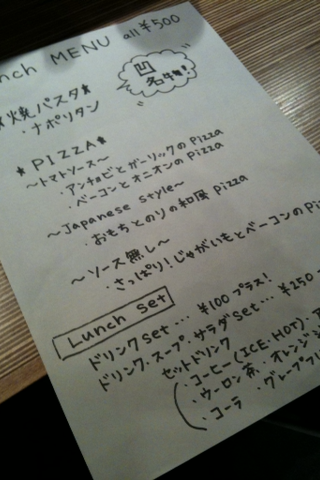 unch MENU all ¥500
凹
名物!
焼パスタ*
・ナポリタン
* PIZZA *
〜トマトソース〜
・アンチョビとガーリックのPizza
・ベーコンとオニオンのPizza
〜Japanese style〜
・おもちとのりの和風 Pizza
〜ソース無し〜
・さっぱり!じゃがいもとベーコンのPi
Lunch Set
ドリンクSet… ¥100プラス!
ドリンク・スープ・サラダSet… ¥250
セットドリンク
・コーヒー(ICE・HOT)・ア
・ウーロン茶・オレンジ
・コーラ ・グレープフ